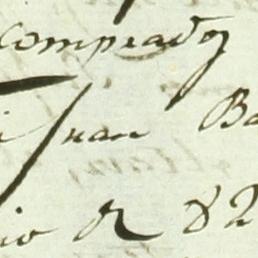 comprador
Juan Ba
io de 82